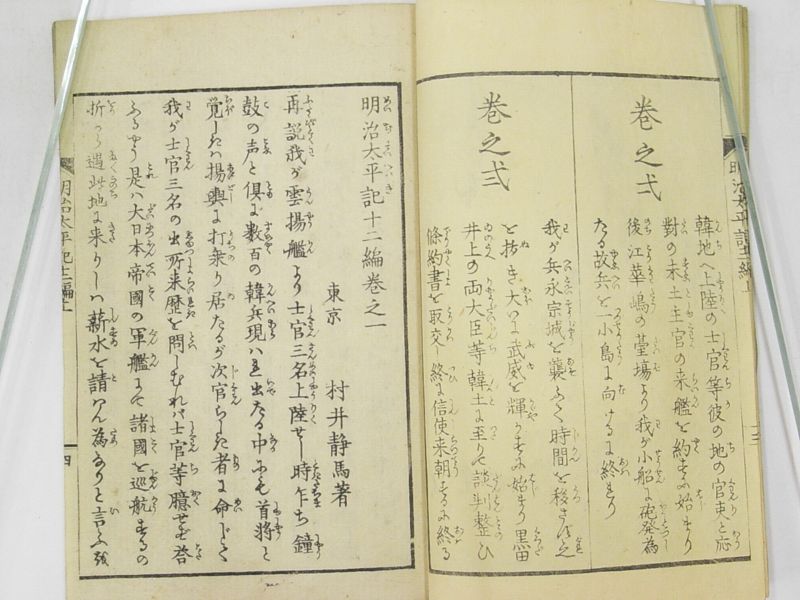 巻之弌
韓地へ上陸の士官等彼の地の官吏と応
對の末土主官の来艦を約するに始まり
後江華嶋の䑓塲より我が小船に砲発為
たる故兵を一小島に向けるに終をり
巻之弍
我が兵永宗城を襲ふて時間を移さず之
を抜き大いに武威を輝かするに始まり黒田
井上の両大臣等韓土に至りて談判整ひ
條約書を取交し終に信使来朝するに終る
明治太平記十二編巻之一
東京 村井静馬著
再説我が雲揚艦より士官三名上陸せし時乍ち鐘
鼓の声と倶に数百の韓兵現はれ出たる中にも首将と
覚しきハ揚輿に打乗り居たるが次官らしき者に命じて
我が士官三名の出所来歴を問しむれバ士官等臆せず答
ふるやう是ハ大日本帝國の軍艦にて諸國を巡航するの
折から遇此地に来りしハ薪水を請はん為なりと言ふ
明治太平記十二編上
四
明治太平記十二編上